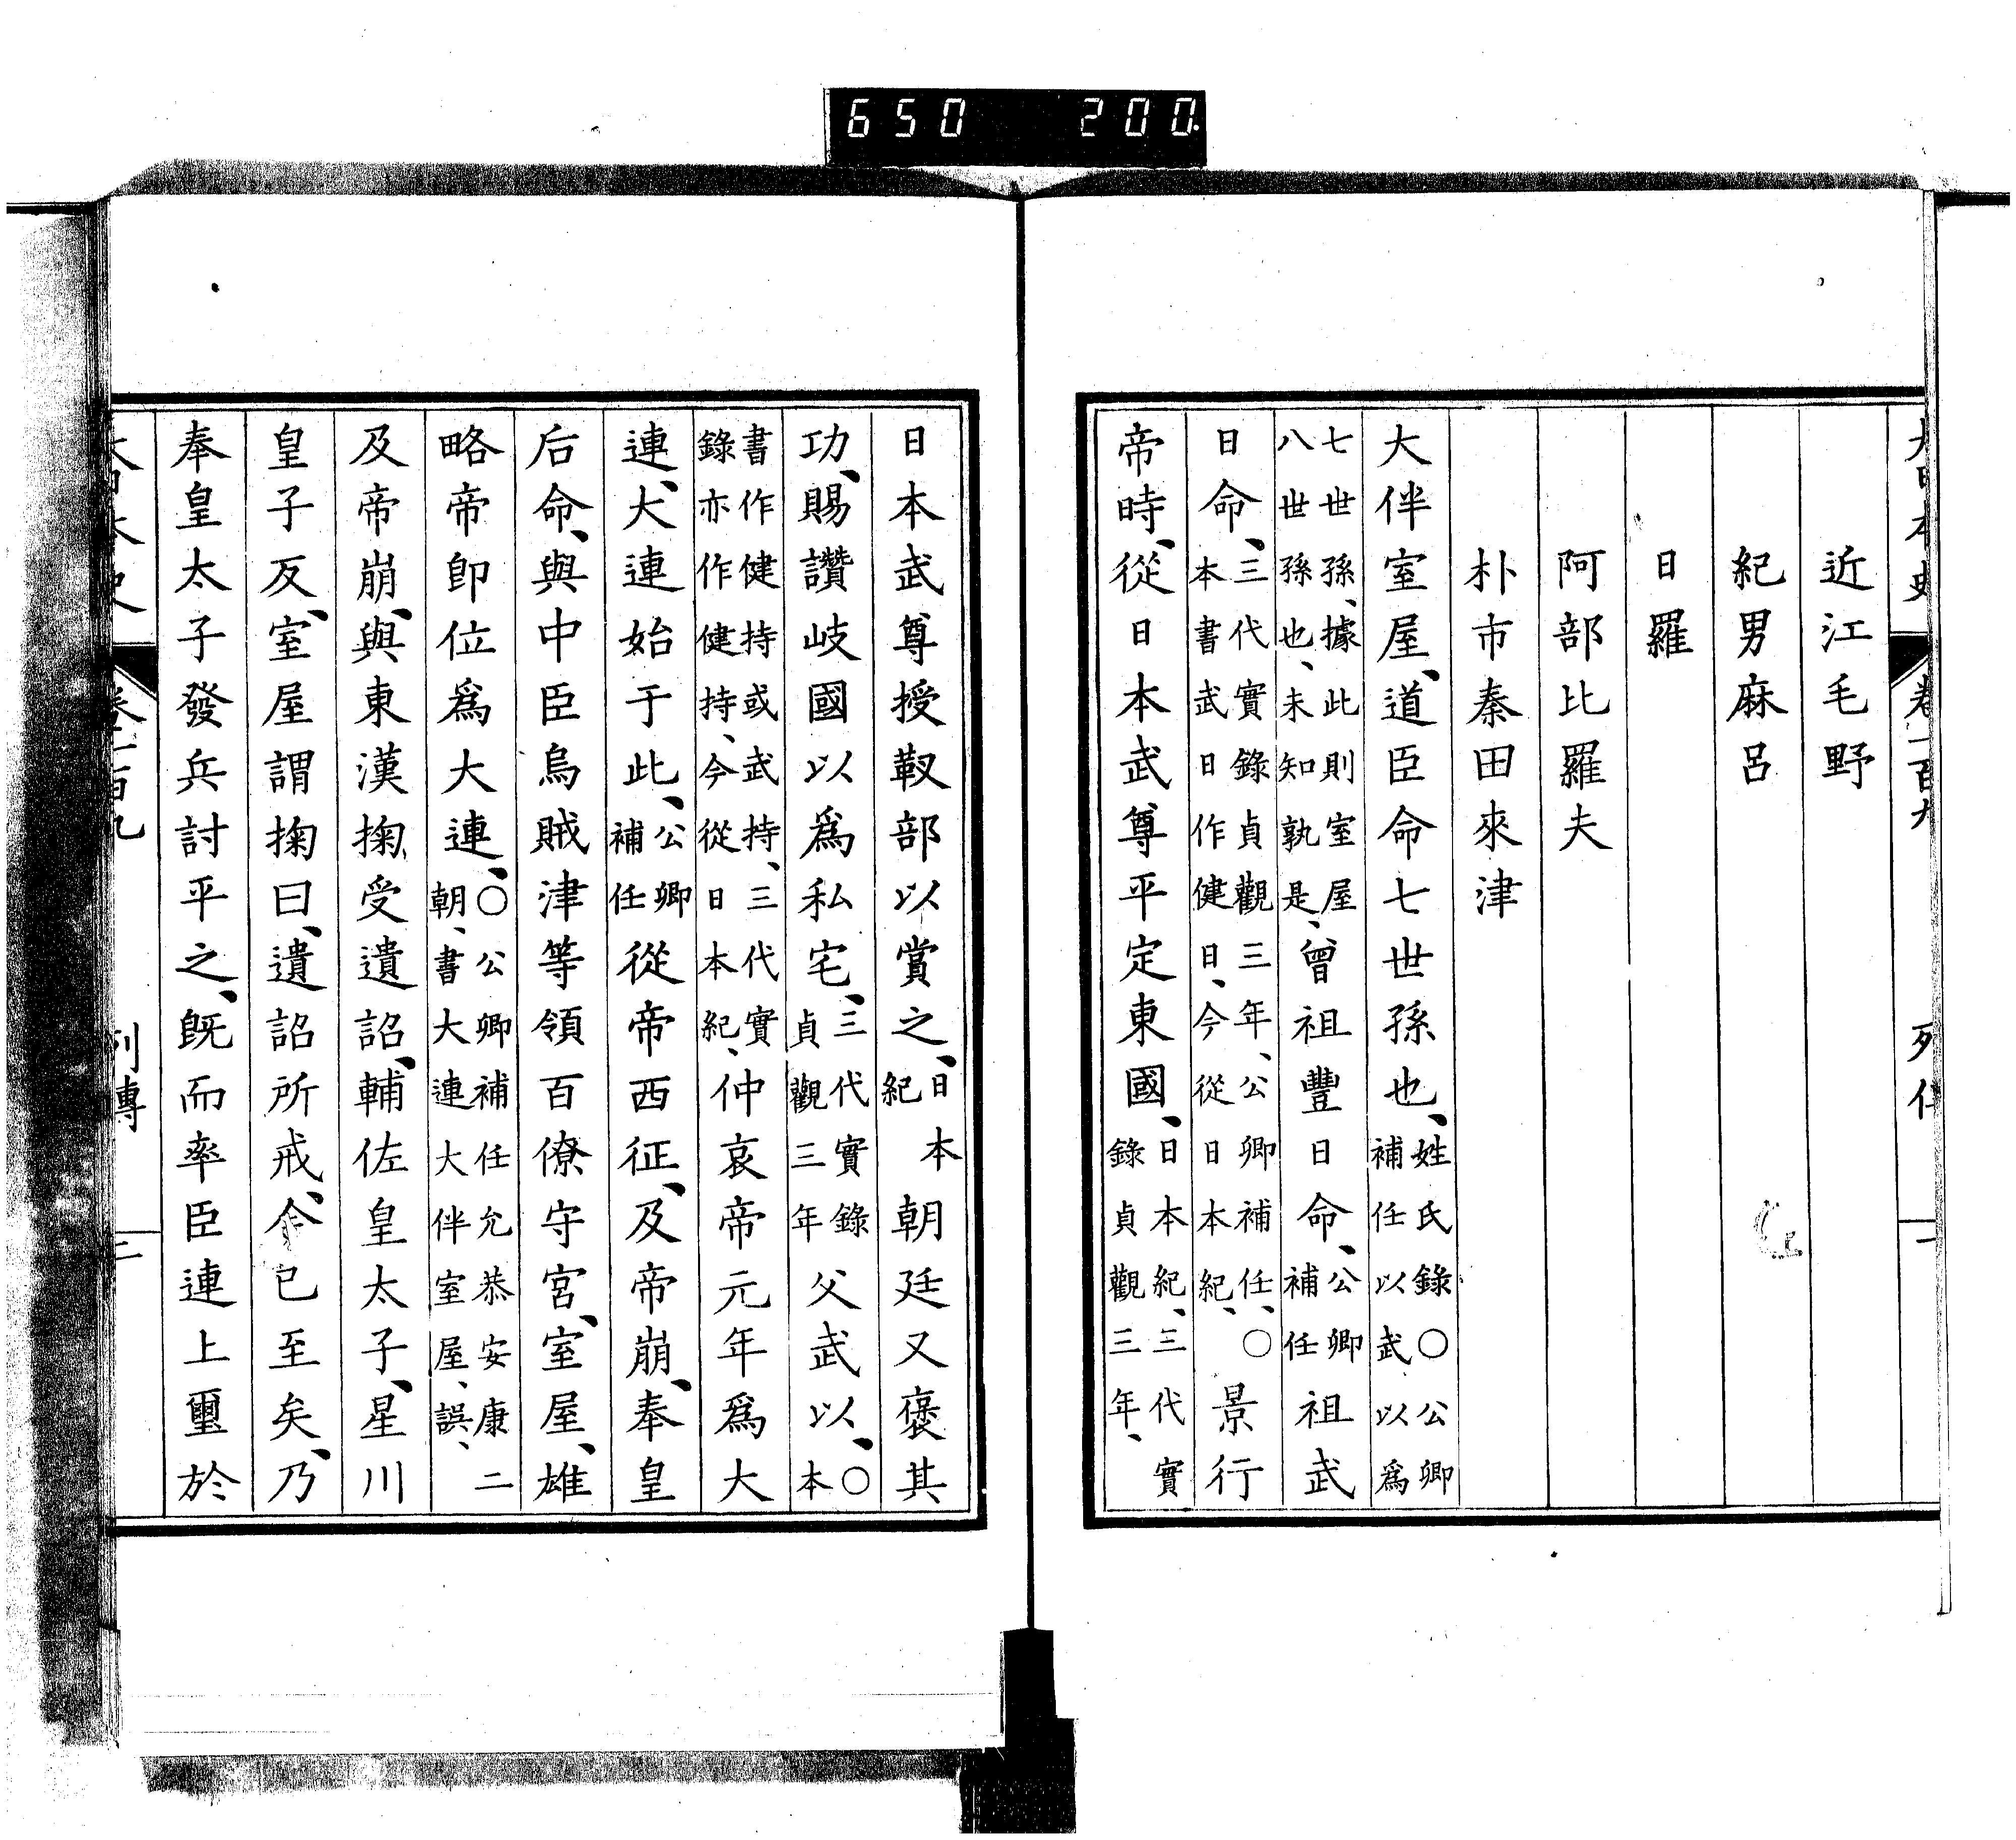 650 200.
大日本史 卷一百九 列傳 一
近江毛野
紀男麻呂
日羅
阿部比羅夫
朴市秦田來津
大伴室屋、道臣命七世孫也、姓氏錄○公卿補任以武以爲
七世孫、據此則室屋八世孫也、未知孰是、曾祖豐日命、公卿補任祖武
日命、三代實錄貞觀三年、公卿補任、○本書武日作健日、今從日本紀、景行
帝時、從日本武尊平定東國、日本紀、三代實錄貞觀三年、
日本武尊授靫部以賞之、日本紀朝廷又褒其
功、賜讚岐國以爲私宅、三代實錄貞觀三年父武以、○本
書作健持或武持、三代實錄亦作健持、今從日本紀、仲哀帝元年爲大
連、大連始于此、公卿補任從帝西征、及帝崩、奉皇
后命、與中臣烏賊津等領百僚守宮、室屋、雄
略帝卽位爲大連、○公卿補任允恭安康二朝、書大連大伴室屋、誤、
及帝崩、與東漢掬受遺詔、輔佐皇太子、星川
皇子反、室屋謂掬曰、遺詔所戒、今已至矣、乃
奉皇太子發兵討平之、旣而率臣連上璽於
大日本史 卷一百九 列傳 二